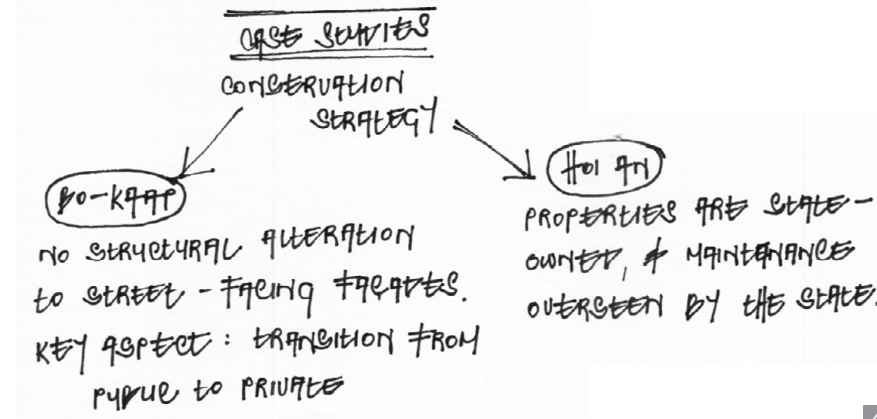 CASE STUDIES
CONSERVATION
STRATEGY
BO-KAAP
NO STRUCTURAL ALTERATION
to STREET - FACING FACADES.
KEY ASPECT : TRANSITION FROM
PUBLIC to PRIVATE
HOI AN
PROPERTIES ARE STATE-
OWNED, & MAINTENANCE
OVERSEEN BY tHE STATE.